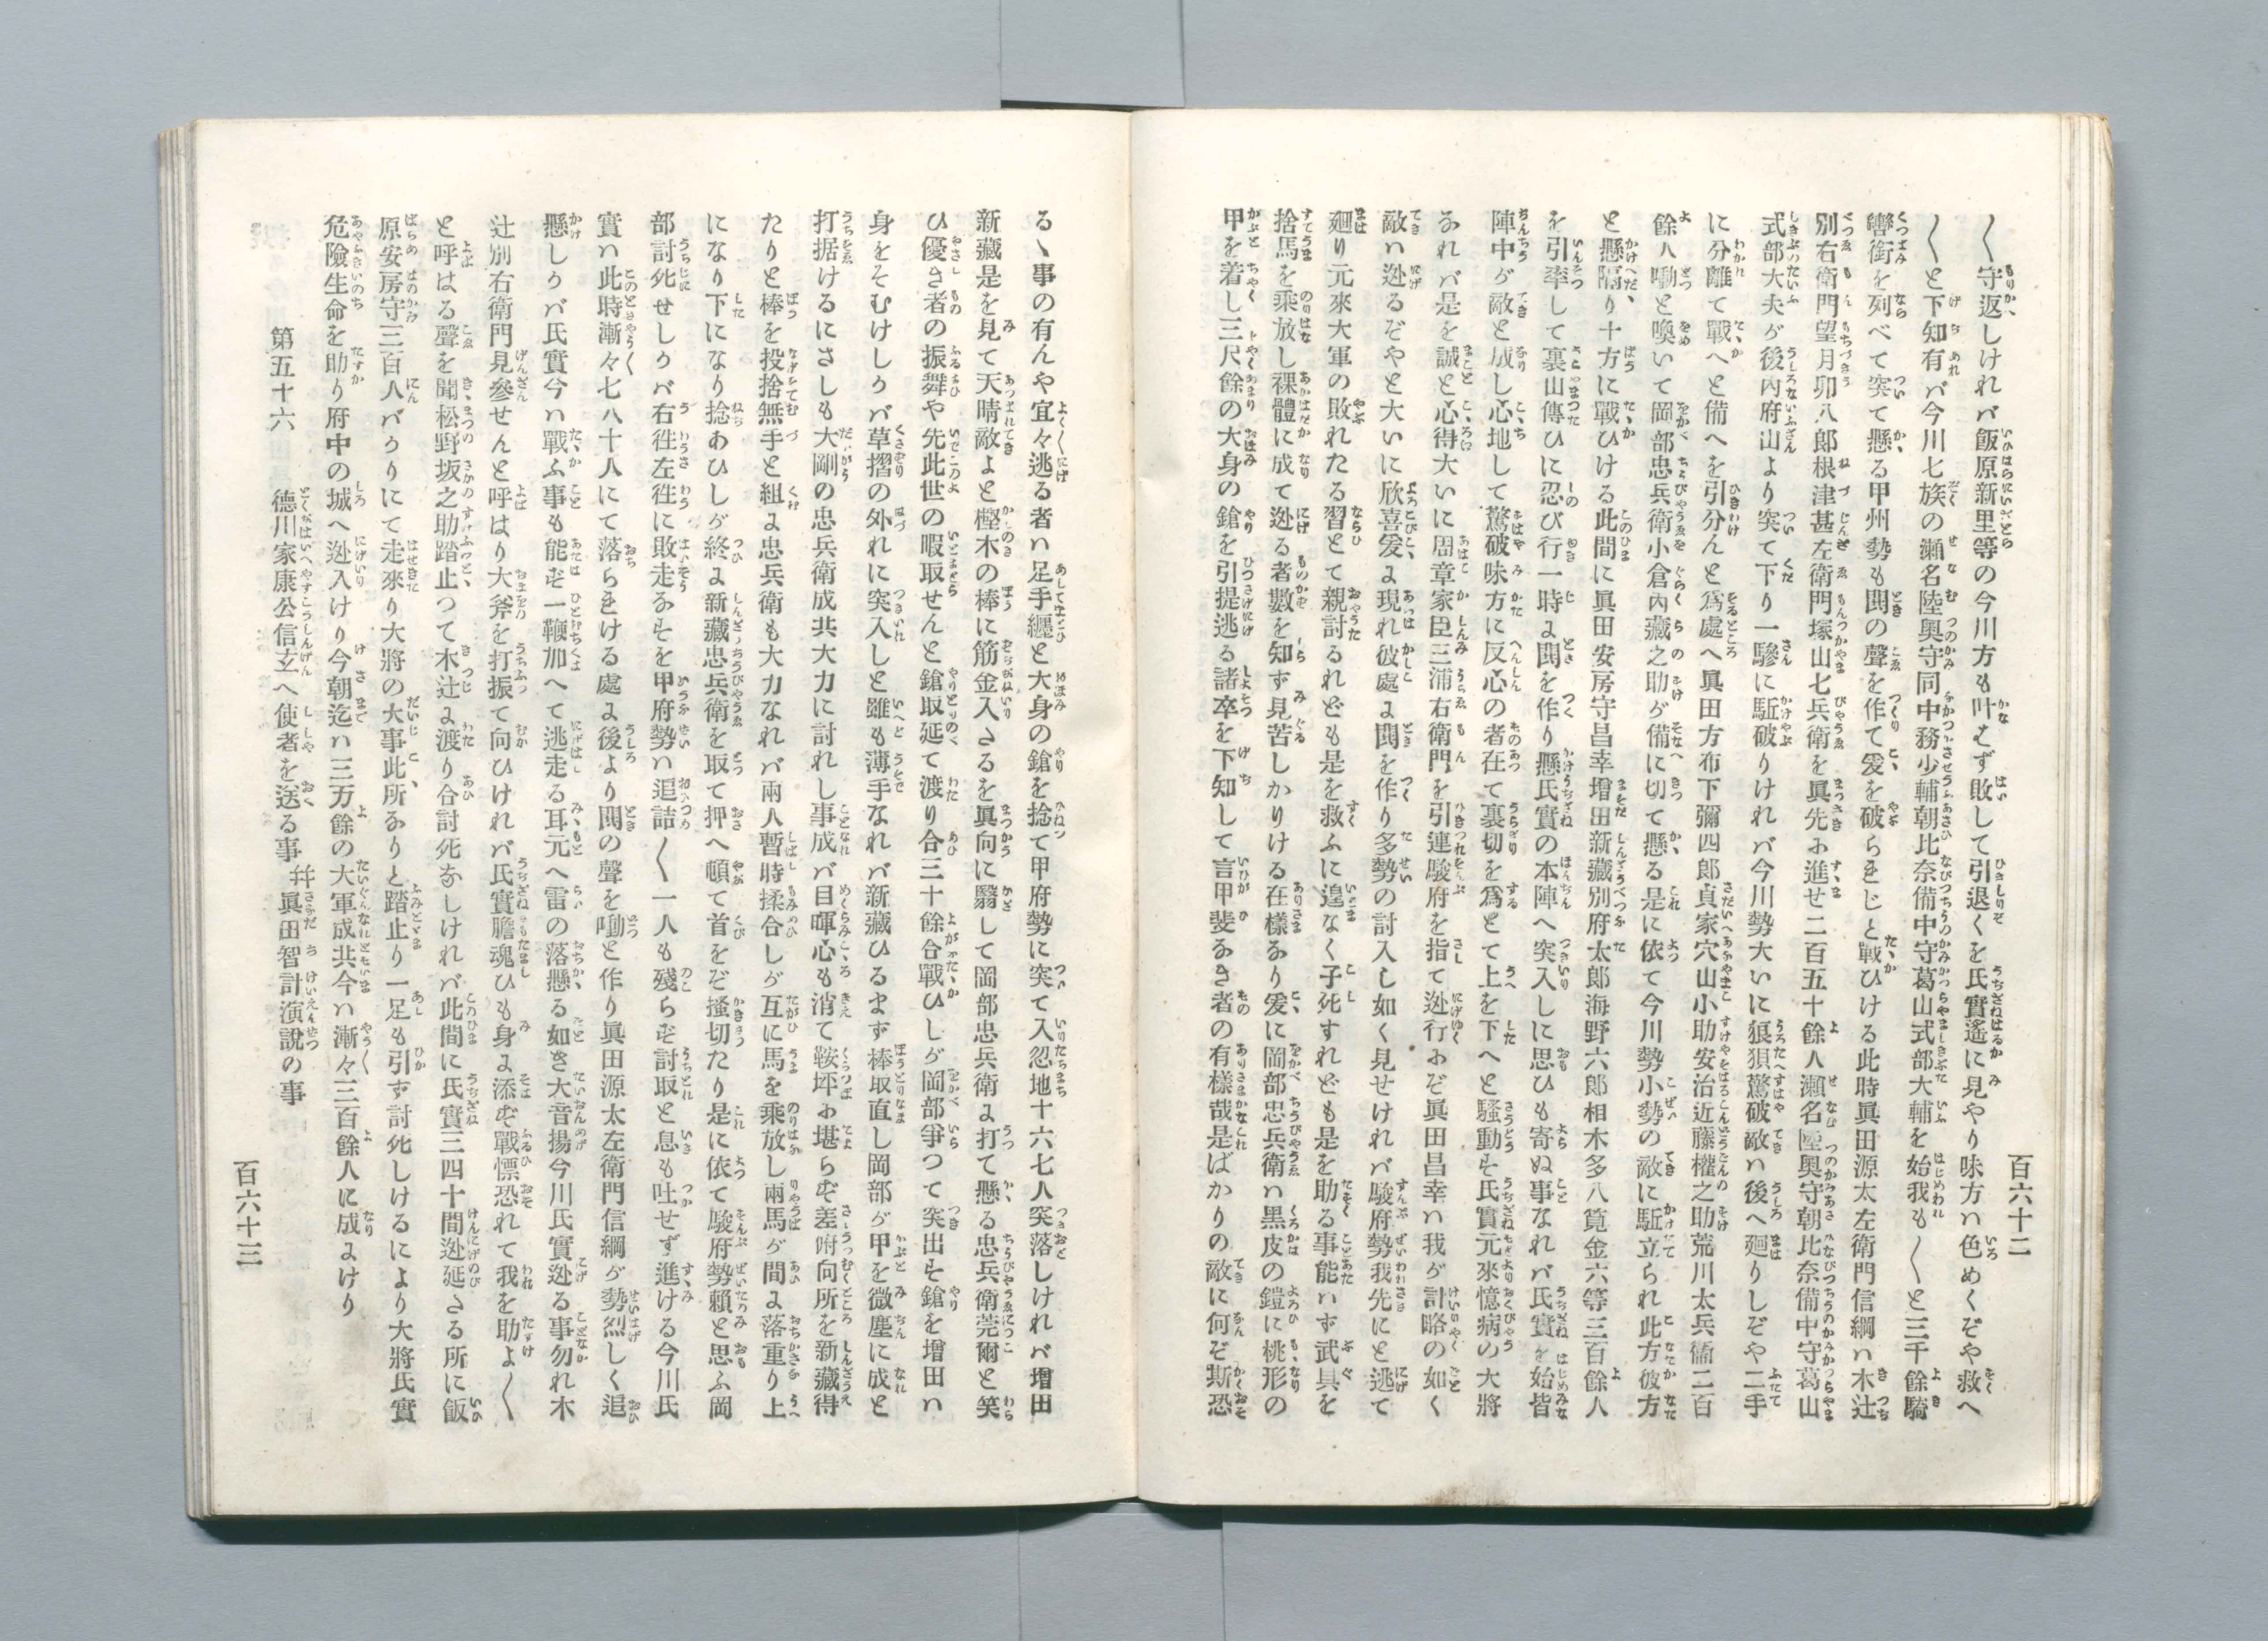 百六十二
〱守返しけれバ飯原新里等の今川方も叶はず敗して引退くを氏實遙に見やり味方ハ色めくぞや救へ
〱と下知有バ今川七族の瀬名陸奥守同中務少輔朝比奈備中守葛山式部大輔を始我も〱と三千餘騎
轡銜を列べて突て懸る甲州勢も鬨の聲を作て爰を破られじと戰ひける此時眞田源太左衛門信綱ハ木辻
別右衛門望月卯八郎根津甚左衛門塚山七兵衛を眞先お進せ二百五十餘人瀬名陸奥守朝比奈備中守葛山
式部大夫が後內府山より突て下り一驂に駈破りけれバ今川勢大いに狼狽驚破敵ハ後へ廻りしぞや二手
に分離て戰へと備へを引分んと爲處へ眞田方布下彌四郎貞家穴山小助安治近藤權之助荒川太兵衞二百
餘人噺と喚いて岡部忠兵衛小倉內藏之助が備に切て懸る是に依て今川勢小勢の敵に駈立られ此方彼方
と懸隔り十方に戰ひける此間に眞田安房守昌幸增田新藏別府太郎海野六郎相木多八筧金六等三百餘人
を引率して裏山傳ひに忍び行一時に鬨を作り懸氏實の本陣へ突入しに思ひも寄ぬ事なれバ氏實を始皆
陣中が敵と成し心地して驚破味方に反心の者在て裏切を爲とて上を下へと騷動せ氏實元來憶病の大將
なれバ是を誠と心得大いに周章家臣三浦右衛門を引連駿府を指て迯行おぞ眞田昌幸ハ我が計略の如く
敵ハ迯るぞやと大いに欣喜爰に現れ彼處に鬨を作り多勢の討入し如く見せけれバ駿府勢我先にと逃て
廻り元來大軍の敗れたる習とて親討るれども是を救ふに遑なく子死すれども是を助る事能ハず武具を
捨馬を乘放し裸體に成て迯る者數を知ず見苦しかりける在樣なり爰に岡部忠兵衛ハ黑皮の鎧に桃形の
甲を着し三尺餘の大身の鎗を引提逃る諸卒を下知して言甲斐なき者の有樣哉是ばかりの敵に何ぞ斯恐
るゝ事の有んや宜々逃る者ハ足手纏と大身の鎗を捻て甲府勢に突て入忽地十六七人突落しけれバ增田
新藏是を見て天晴敵よと樫木の棒に筋金入たるを眞向に翳して岡部忠兵衛に打て懸る忠兵衛莞爾と笑
ひ優き者の振舞や先此世の暇取せんと鎗取延て渡り合三十餘合戰ひしが岡部爭つて突出せ鎗を增田ハ
身をそむけしかバ草摺の外れに突入しと雖も薄手なれバ新藏ひるまず棒取直し岡部が甲を微塵に成と
打据けるにさしも大剛の忠兵衛成共大力に討れし事成バ目暉心も消て鞍坪お堪らず差附向所を新藏得
たりと棒を投捨無手と組に忠兵衛も大力なれバ兩人暫時揉合しが互に馬を乘放し兩馬が間に落重り上
になり下になり捻あひしが終に新藏忠兵衛を取て押へ頓て首をぞ搔切たり是に依て駿府勢賴と思ふ岡
部討死せしかバ右徃左徃に敗走なすを甲府勢ハ追詰〱一人も殘らず討取と息も吐せず進ける今川氏
實ハ此時漸々七八十人にて落られける處に後より鬨の聲を噺と作り眞田源太左衛門信綱が勢烈しく追
懸しかバ氏實今ハ戰ふ事も能ず一鞭加へて逃走る耳元へ雷の落懸る如き大音揚今川氏實迯る事勿れ木
辻別右衛門見參せんと呼はり大斧を打振て向ひけれバ氏實膽魂ひも身に添ず戰慄恐れて我を助よ〱
と呼はる聲を聞松野坂之助踏止つて木辻に渡り合討死なしけれバ此間に氏實三四十間迯延たる所に飯
原安房守三百人バかりにて走來り大將の大事此所なりと踏止り一足も引ず討死しけるにより大將氏實
危險生命を助り府中の城へ迯入けり今朝迄ハ三万餘の大軍成共今ハ漸々三百餘人に成にけり
第五十六　德川家康公信玄へ使者を送る事　幷眞田智計演說の事
百六十三